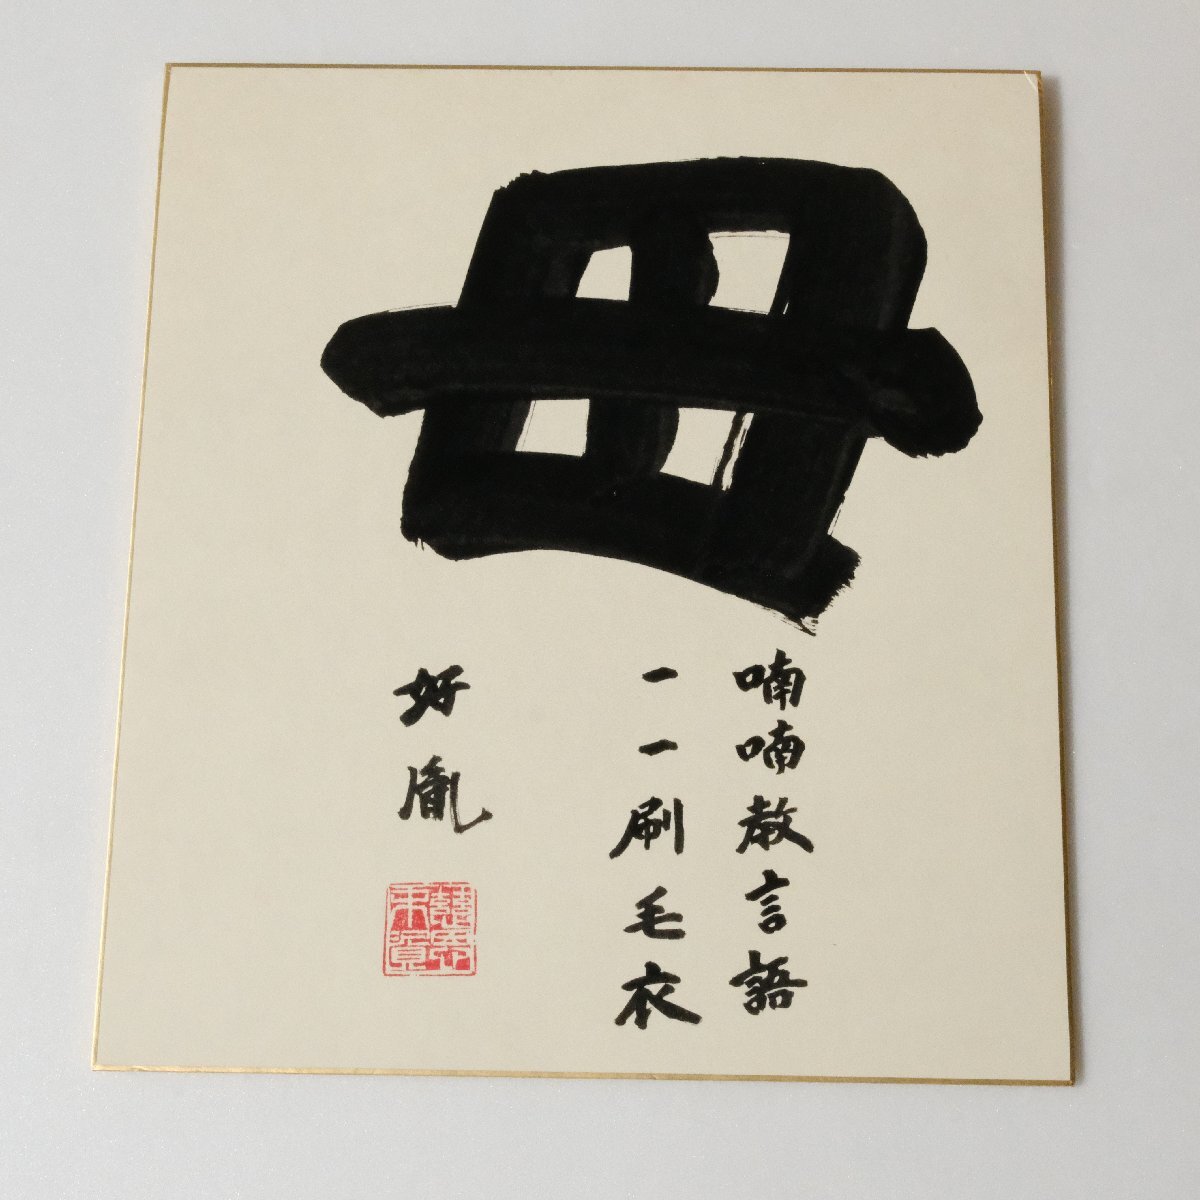 母
喃喃教言語
一一刷毛衣
好胤